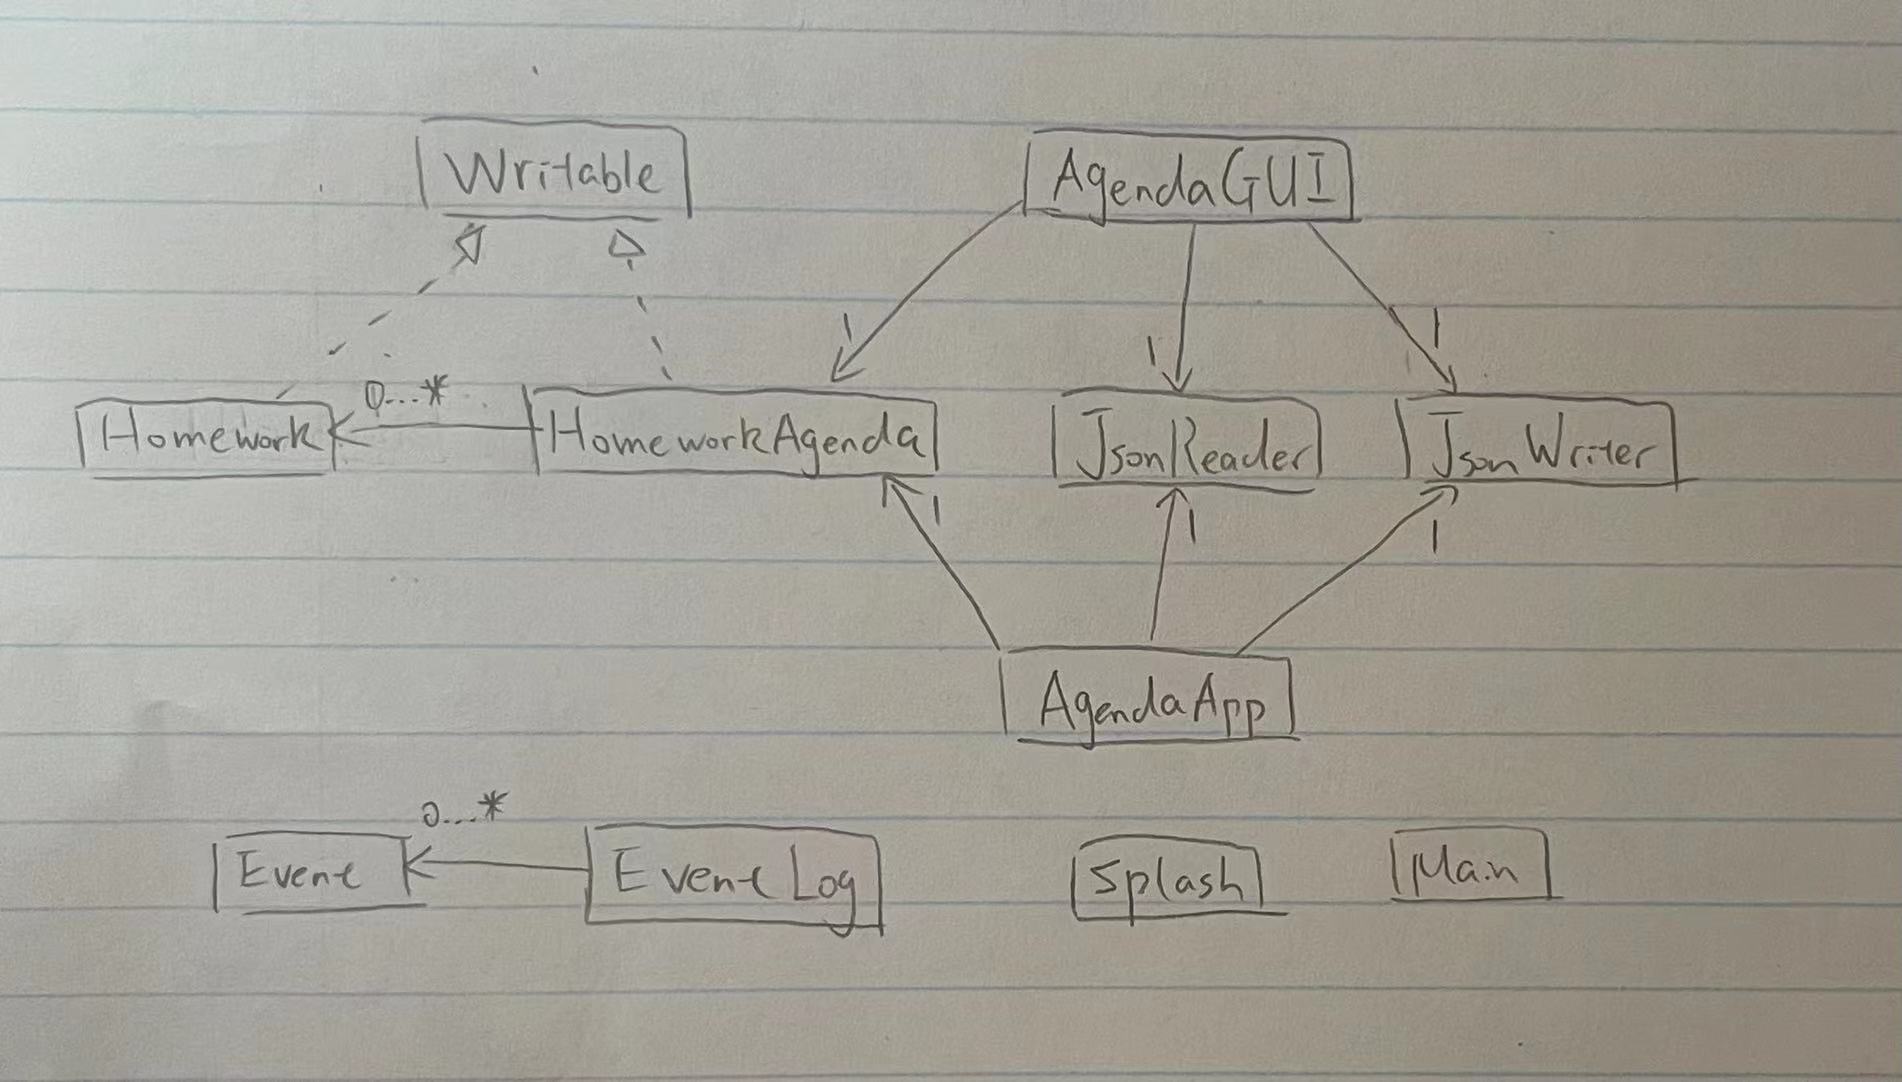 Writable
AgendaGUI
1
1
1
0...*
Homework
HomeworkAgenda
JsonReader
JsonWriter
1
1
1
AgendaApp
0...*
Event
EventLog
Splash
Main